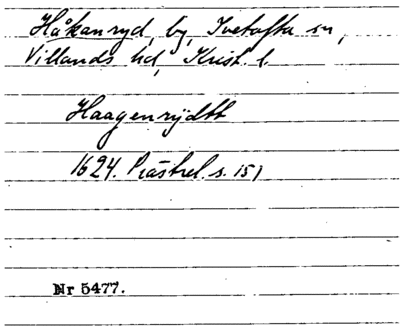 Håkanryd, by, Ivetofta sn,
Villands hd, Krist. l.
Haagenrydtt
1624. Prästrel. s. 151
Nr 5477.